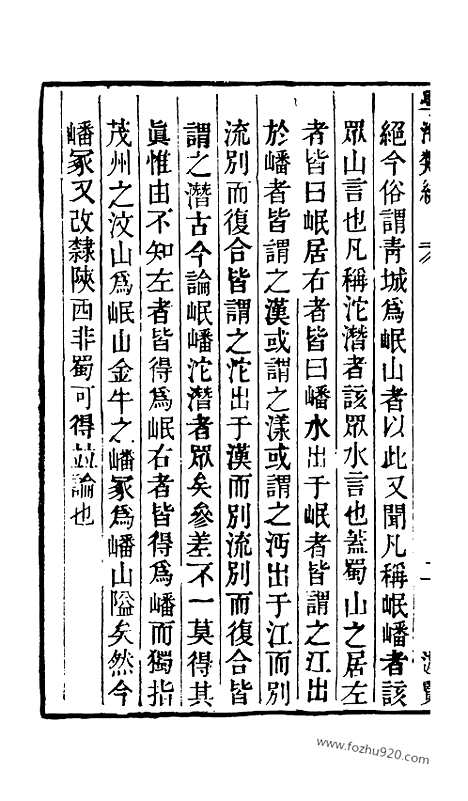 學海類編
二
絕今俗謂青城為岷山者以此又聞凡稱岷嶓者該
眾山言也凡稱沱潛者該眾水言也蓋蜀山之居左
者皆曰岷居右者皆曰嶓水出于岷者皆謂之江出
於嶓者皆謂之漢或謂之漾或謂之沔出于江而別
流別而復合皆謂之沱出于漢而別流別而復合皆
謂之潛古今論岷嶓沱潛者眾矣參差不一莫得其
眞惟由不知左者皆得為岷右者皆得為嶓而獨指
茂州之汶山為岷山金牛之嶓冢為嶓山隘矣然今
嶓冢又改隸陝西非蜀可得並論也
www.fozhu920.com